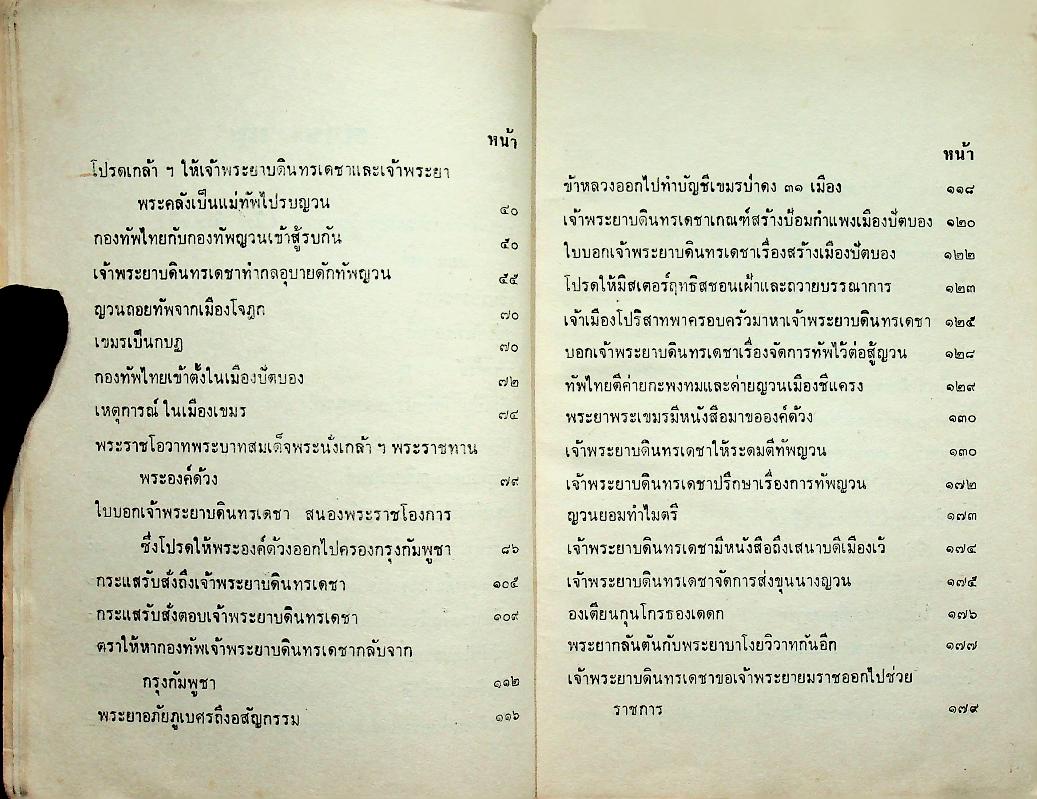 หน้า
โปรดเกล้า ฯ ให้เจ้าพระยาบดินทรเดชาและเจ้าพระยา
พระคลังเป็นแม่ทัพไปรบญวน ๔๐
กองทัพไทยกับกองทัพญวนเข้าสู้รบกัน ๕๐
เจ้าพระยาบดินทรเดชาทำกลอุบายดักทัพญวน ๕๕
ญวนถอยทัพจากเมืองโจฎก ๗๐
เขมรเป็นกบฏ ๗๐
กองทัพไทยเข้าตั้งในเมืองปัตบอง ๗๒
เหตุการณ์ ในเมืองเขมร ๗๔
พระราชโอวาทพระบาทสมเด็จพระนั่งเกล้า ฯ พระราชทาน
พระองค์ด้วง ๗๙
ใบบอกเจ้าพระยาบดินทรเดชา สนองพระราชโองการ
ซึ่งโปรดให้พระองค์ด้วงออกไปครองกรุงกัมพูชา ๘๖
กระแสรับสั่งถึงเจ้าพระยาบดินทรเดชา ๑๐๕
กระแสรับสั่งตอบเจ้าพระยาบดินทรเดชา ๑๐๙
ตราให้หากองทัพเจ้าพระยาบดินทรเดชากลับจาก
กรุงกัมพูชา ๑๑๒
พระยาอภัยภูเบศรถึงอสัญกรรม ๑๑๖
หน้า
ข้าหลวงออกไปทำบัญชีเขมรป่าดง ๓๑ เมือง ๑๑๘
เจ้าพระยาบดินทรเดชาเกณฑ์สร้างป้อมกำแพงเมืองปัตบอง ๑๒๐
ใบบอกเจ้าพระยาบดินทรเดชาเรื่องสร้างเมืองปัตบอง ๑๒๒
โปรดให้มิสเตอร์ฤทธิสชอนเฝ้าและถวายบรรณาการ ๑๒๓
เจ้าเมืองโปริสาทพาครอบครัวมาหาเจ้าพระยาบดินทรเดชา ๑๒๕
บอกเจ้าพระยาบดินทรเดชาเรื่องจัดการทัพไว้ต่อสู้ญวน ๑๒๘
ทัพไทยตีค่ายกะพงทมและค่ายญวนเมืองชีแครง ๑๒๙
พระยาพระเขมรมีหนังสือมาขอองค์ด้วง ๑๓๐
เจ้าพระยาบดินทรเดชาให้ระดมตีทัพญวน ๑๓๐
เจ้าพระยาบดินทรเดชาปรึกษาเรื่องการทัพญวน ๑๗๒
ญวนยอมทำไมตรี ๑๗๓
เจ้าพระยาบดินทรเดชามีหนังสือถึงเสนาบดีเมืองเว้ ๑๗๔
เจ้าพระยาบดินทรเดชาจัดการส่งขุนนางญวน ๑๗๕
องเตียนกุนโกรธองเดดก ๑๗๖
พระยากลันตันกับพระยาบาโงยวิวาทกันอีก ๑๗๗
เจ้าพระยาบดินทรเดชาขอเจ้าพระยายมราชออกไปช่วย
ราชการ ๑๗๙